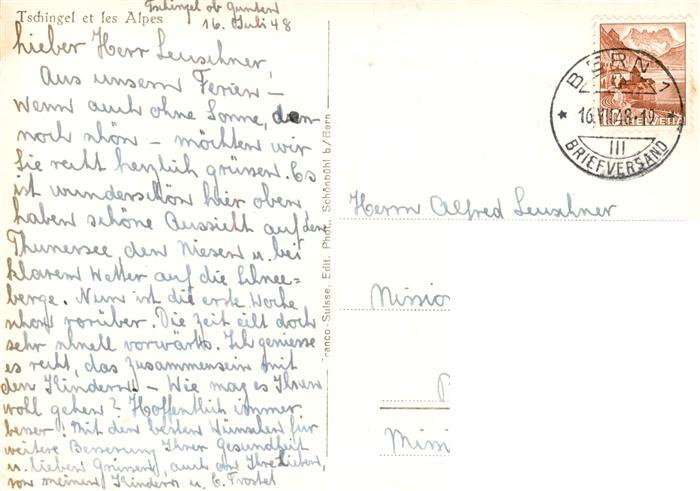 Tschingel et les Alpes
Tschingel ob Gunten
16. Juli 48
Lieber Herr Leuschner,
Aus unsern Ferien –
wenn auch ohne Sonne, den
noch schön – möchten wir
Sie recht herzlich grüssen. Es
ist wunderschön hier oben
haben schöne Aussicht auf den
Thunersee, den Niesen u. bei
klarem Wetter auf die Schnee=
berge. Nun ist die erste Woche
schon vorüber. Die Zeit eilt doch
sehr schnell vorwärts. Ich geniesse
es recht, das Zusammensein mit
den Kindern. – Wie mag es Ihnen
wohl gehen? Hoffentlich immer
besser! Mit den besten Wünschen für
weitere Besserung Ihrer Gesundheit
u. lieben Grüssen, auch an Ihre Lieben,
von meinen Kindern u. E. Trostel
Franco-Suisse, Edit. Phot., Schönbühl b/Bern
BERN 1
16.VII.48.-19
III
BRIEFVERSAND
HELVETIA
Herrn Alfred Leuschner
Missio
Missi